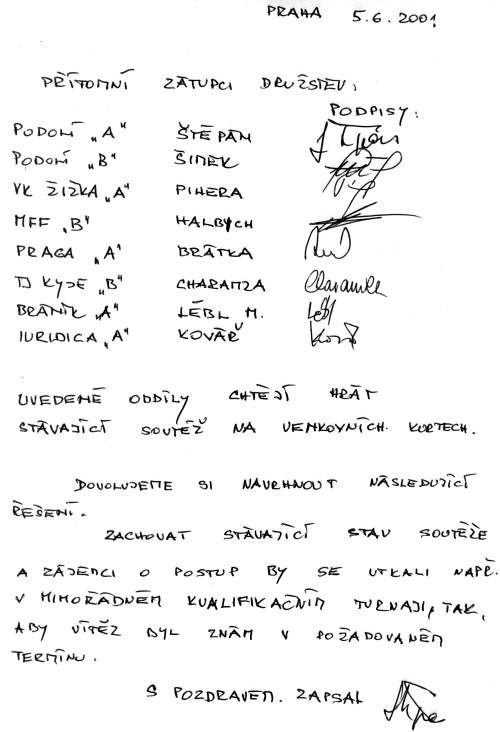 PRAHA 5.6.2001
PŘÍTOMNÍ ZÁTUPCI DRUŽSTEV:
PODPISY:
PODOLÍ „A" ŠTĚPÁN
PODOLÍ „B" ŠIMEK
VK ŽIŽKA „A" PIHERA
MFF „B" HALBYCH
PRAGA „A" BRÁTKA
TJ KYJE „B" CHARAMZA Charamza
BRÁNÍK „A" LÉBL M. Lébl
IURIDICA „A" KOVÁŘ Kovář
UVEDENÉ ODDÍLY CHTĚJÍ HRÁT
STÁVAJÍCÍ SOUTĚŽ NA VENKOVNÍCH KURTECH.
DOVOLUJEME SI NAVRHNOUT NÁSLEDUJÍCÍ
ŘEŠENÍ.
ZACHOVAT STÁVAJÍCÍ STAV SOUTĚŽE
A ZÁJEMCI O POSTUP BY SE UTKALI NAPŘ.
V MIMOŘÁDNÉM KVALIFIKAČNÍM TURNAJI, TAK,
ABY VÍTĚZ BYL ZNÁM V POŽADOVANÉM
TERMÍNU.
S POZDRAVEM. ZAPSAL